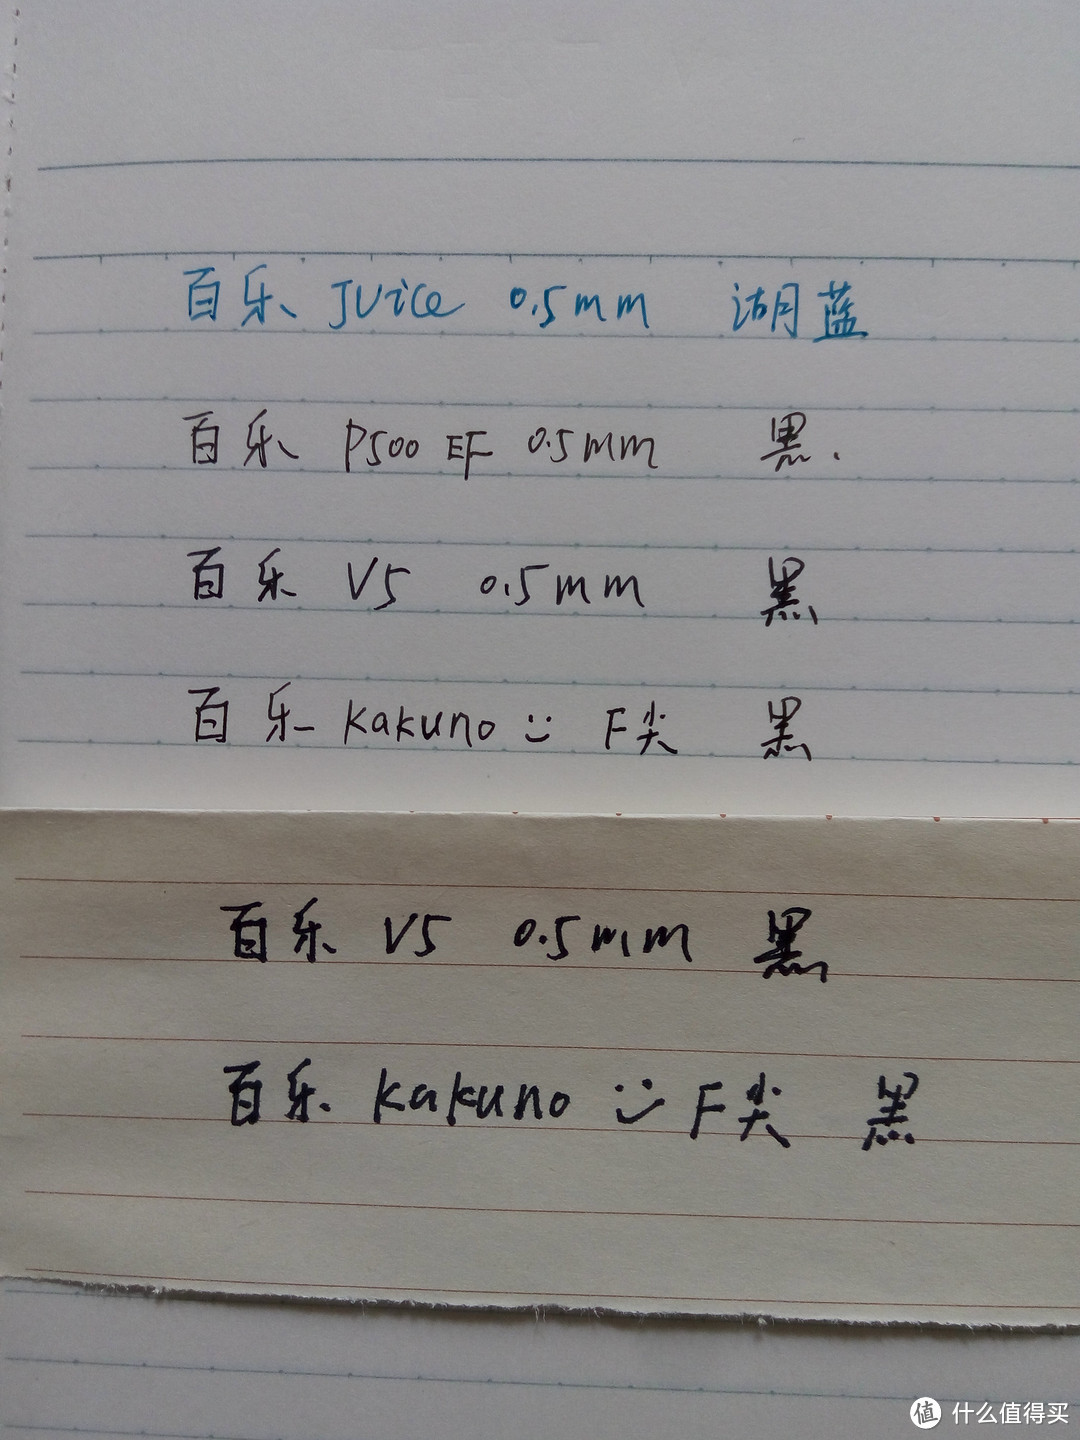 百乐 Juice 0.5mm 湖蓝
百乐 P500 EF 0.5mm 黑.
百乐 V5 0.5mm 黑
百乐 kakuno :) F尖 黑
百乐 V5 0.5mm 黑
百乐 kakuno :) F尖 黑
值 什么值得买